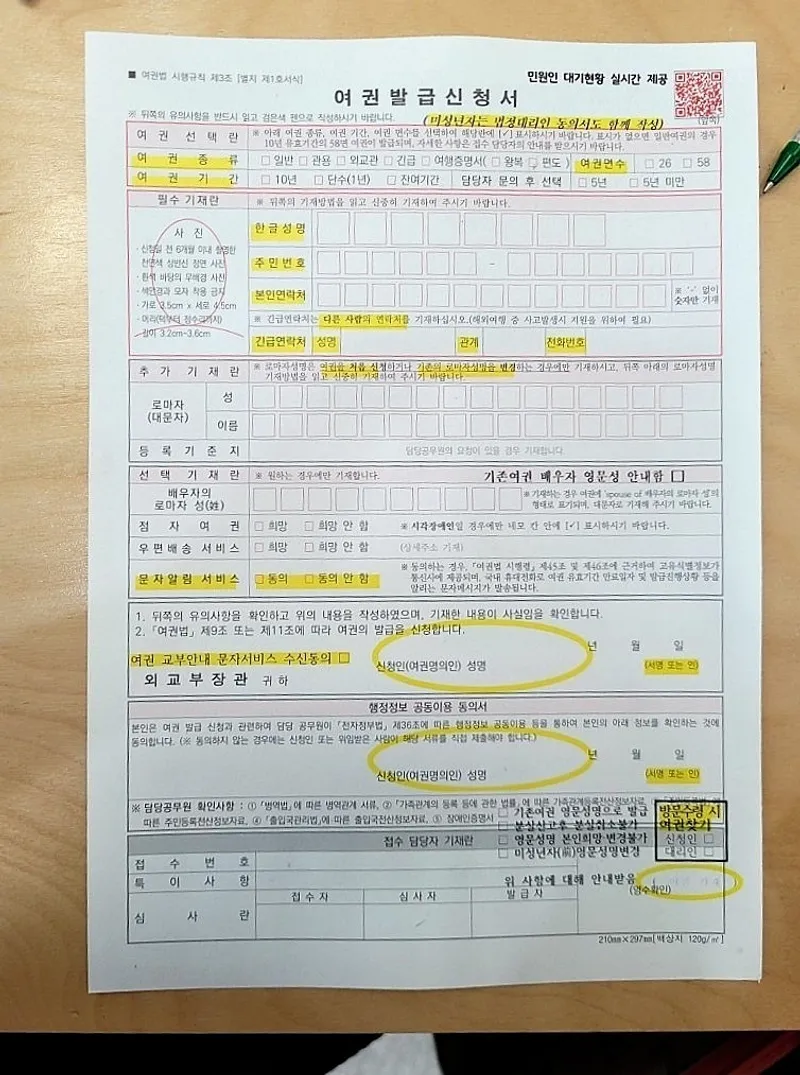 ■ 여권법 시행규칙 제3조 [별지 제1호서식]
민원인 대기현황 실시간 제공
여권발급신청서
※ 뒤쪽의 유의사항을 반드시 읽고 검은색 펜으로 작성하시기 바랍니다.
(미성년자는 법정대리인 동의서도 함께 작성)
(앞쪽)
여 권 선 택 란
※ 아래 여권 종류, 여권 기간, 여권 면수를 선택하여 해당란에 [✓] 표시하시기 바랍니다. 표시가 없으면 일반여권의 경우
10년 유효기간의 58면 여권이 발급되며, 자세한 사항은 접수 담당자의 안내를 받으시기 바랍니다.
여 권 종 류 □ 일반 □ 관용 □ 외교관 □ 긴급 □ 여행증명서( □ 왕복 □ 편도 ) 여권면수 □ 26 □ 58
여 권 기 간 □ 10년 □ 단수(1년) □ 잔여기간 담당자 문의 후 선택 □ 5년 □ 5년 미만
필수 기재란 ※ 뒤쪽의 기재방법을 읽고 신중히 기재하여 주시기 바랍니다.
사 진
· 신청일 전 6개월 이내 촬영한
천연색 상반신 정면 사진
· 흰색 바탕의 무배경 사진
· 색안경과 모자 착용 금지
· 가로 3.5cm x 세로 4.5cm
· 머리(턱부터 정수리까지)
길이 3.2cm-3.6cm
한글성명
주민번호 -
본인연락처 ※ '-' 없이
숫자만 기재
※ 긴급연락처는 다른 사람의 연락처를 기재하십시오.(해외여행 중 사고발생시 지원을 위하여 필요)
긴급연락처 성명 관계 전화번호
추 가 기 재 란
※ 로마자성명은 여권을 처음 신청하거나 기존의 로마자성명을 변경하는 경우에만 기재하고, 뒤쪽 아래의 로마자성명
기재방법을 읽고 신중히 기재하여 주시기 바랍니다.
로마자
(대문자)
성
이름
등 록 기 준 지 담당공무원의 요청이 있을 경우 기재합니다
선 택 기 재 란 ※ 원하는 경우에만 기재합니다. 기존여권 배우자 영문성 안내함 □
배우자의
로마자 성(姓)
※ 기재하는 경우 여권에 'spouse of 배우자의 로마자 성'의
형태로 표기되며, 대문자로 기재해 주시기 바랍니다.
점 자 여 권 □ 희망 □ 희망 안 함 ※ 시각장애인일 경우에만 네모 칸 안에 [✓] 표시하시기 바랍니다.
우편배송 서비스 □ 희망 □ 희망 안 함 (상세주소 기재)
문자알림 서비스 □ 동의 □ 동의 안 함
※ 동의하는 경우, 「여권법 시행령」 제45조 및 제46조에 근거하여 고유식별정보가
통신사에 제공되며, 국내 휴대전화로 여권 유효기간 만료일자 및 발급진행상황 등을
알리는 문자메시지가 발송됩니다.
1. 뒤쪽의 유의사항을 확인하고 위의 내용을 작성하였으며, 기재한 내용이 사실임을 확인합니다.
2. 「여권법」 제9조 또는 제11조에 따라 여권의 발급을 신청합니다.
년 월 일
여권 교부안내 문자서비스 수신동의 □
신청인(여권명의인) 성명 (서명 또는 인)
외 교 부 장 관 귀 하
행정정보 공동이용 동의서
본인은 여권 발급 신청과 관련하여 담당 공무원이 「전자정부법」 제36조에 따른 행정정보 공동이용 등을 통하여 본인의 아래 정보를 확인하는 것에
동의합니다. (※ 동의하지 않는 경우에는 신청인 또는 위임받은 사람이 해당 서류를 직접 제출해야 합니다.)
년 월 일
신청인(여권명의인) 성명 (서명 또는 인)
※ 담당공무원 확인사항 : ① 「병역법」에 따른 병역관계 서류, ② 「가족관계의 등록 등에 관한 법률」에 따른 가족관계등록전산정보자료,
따른 주민등록전산정보자료, ④ 「출입국관리법」에 따른 출입국전산정보자료, ⑤ 장애인증명서
□ 기존여권 영문성명으로 발급
□ 분실신고후 분실취소불가
□ 영문성명 본인희망 변경불가
□ 미성년자(前)영문성명변경
방문수령 시
여권찾기
신청인 □
대리인 □
접수 담당자 기재란
접 수 번 호
특 이 사 항
위 사항에 대해 안내받음
(영수확인)
심 사 란
접 수 자 심 사 자 발 급 자
210㎜×297㎜[백상지 120g/㎡]